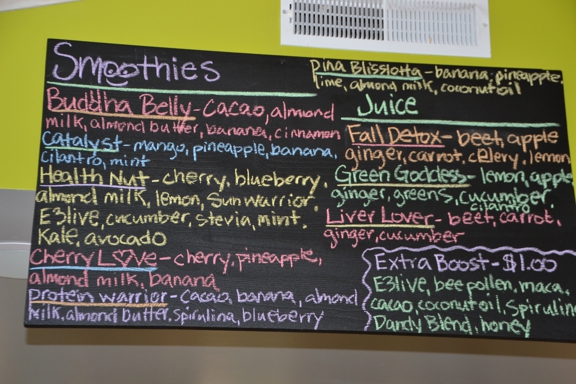 Smoothies
Buddha Belly - Cacao, almond
milk, almond butter, banana, cinnamon
Catalyst - mango, pineapple, banana,
cilantro, mint
Health Nut - cherry, blueberry,
almond milk, lemon, Sun warrior,
E3live, cucumber, stevia, mint,
Kale, avocado
Cherry L♡ve - cherry, pineapple,
almond milk, banana
Protein warrior - cacao, banana, almond
milk, almond butter, spirulina, blueberry
Pina Blisslotta - banana, pineapple,
lime, almond milk, coconut oil
Juice
Fall Detox - beet, apple
ginger, carrot, celery, lemon
Green Goddess - lemon, apple
ginger, greens, cucumber,
cilantro
Liver Lover - beet, carrot,
ginger, cucumber
Extra Boost - $1.00
E3live, bee pollen, maca,
cacao, coconut oil, Spirulin
Dandy Blend, honey